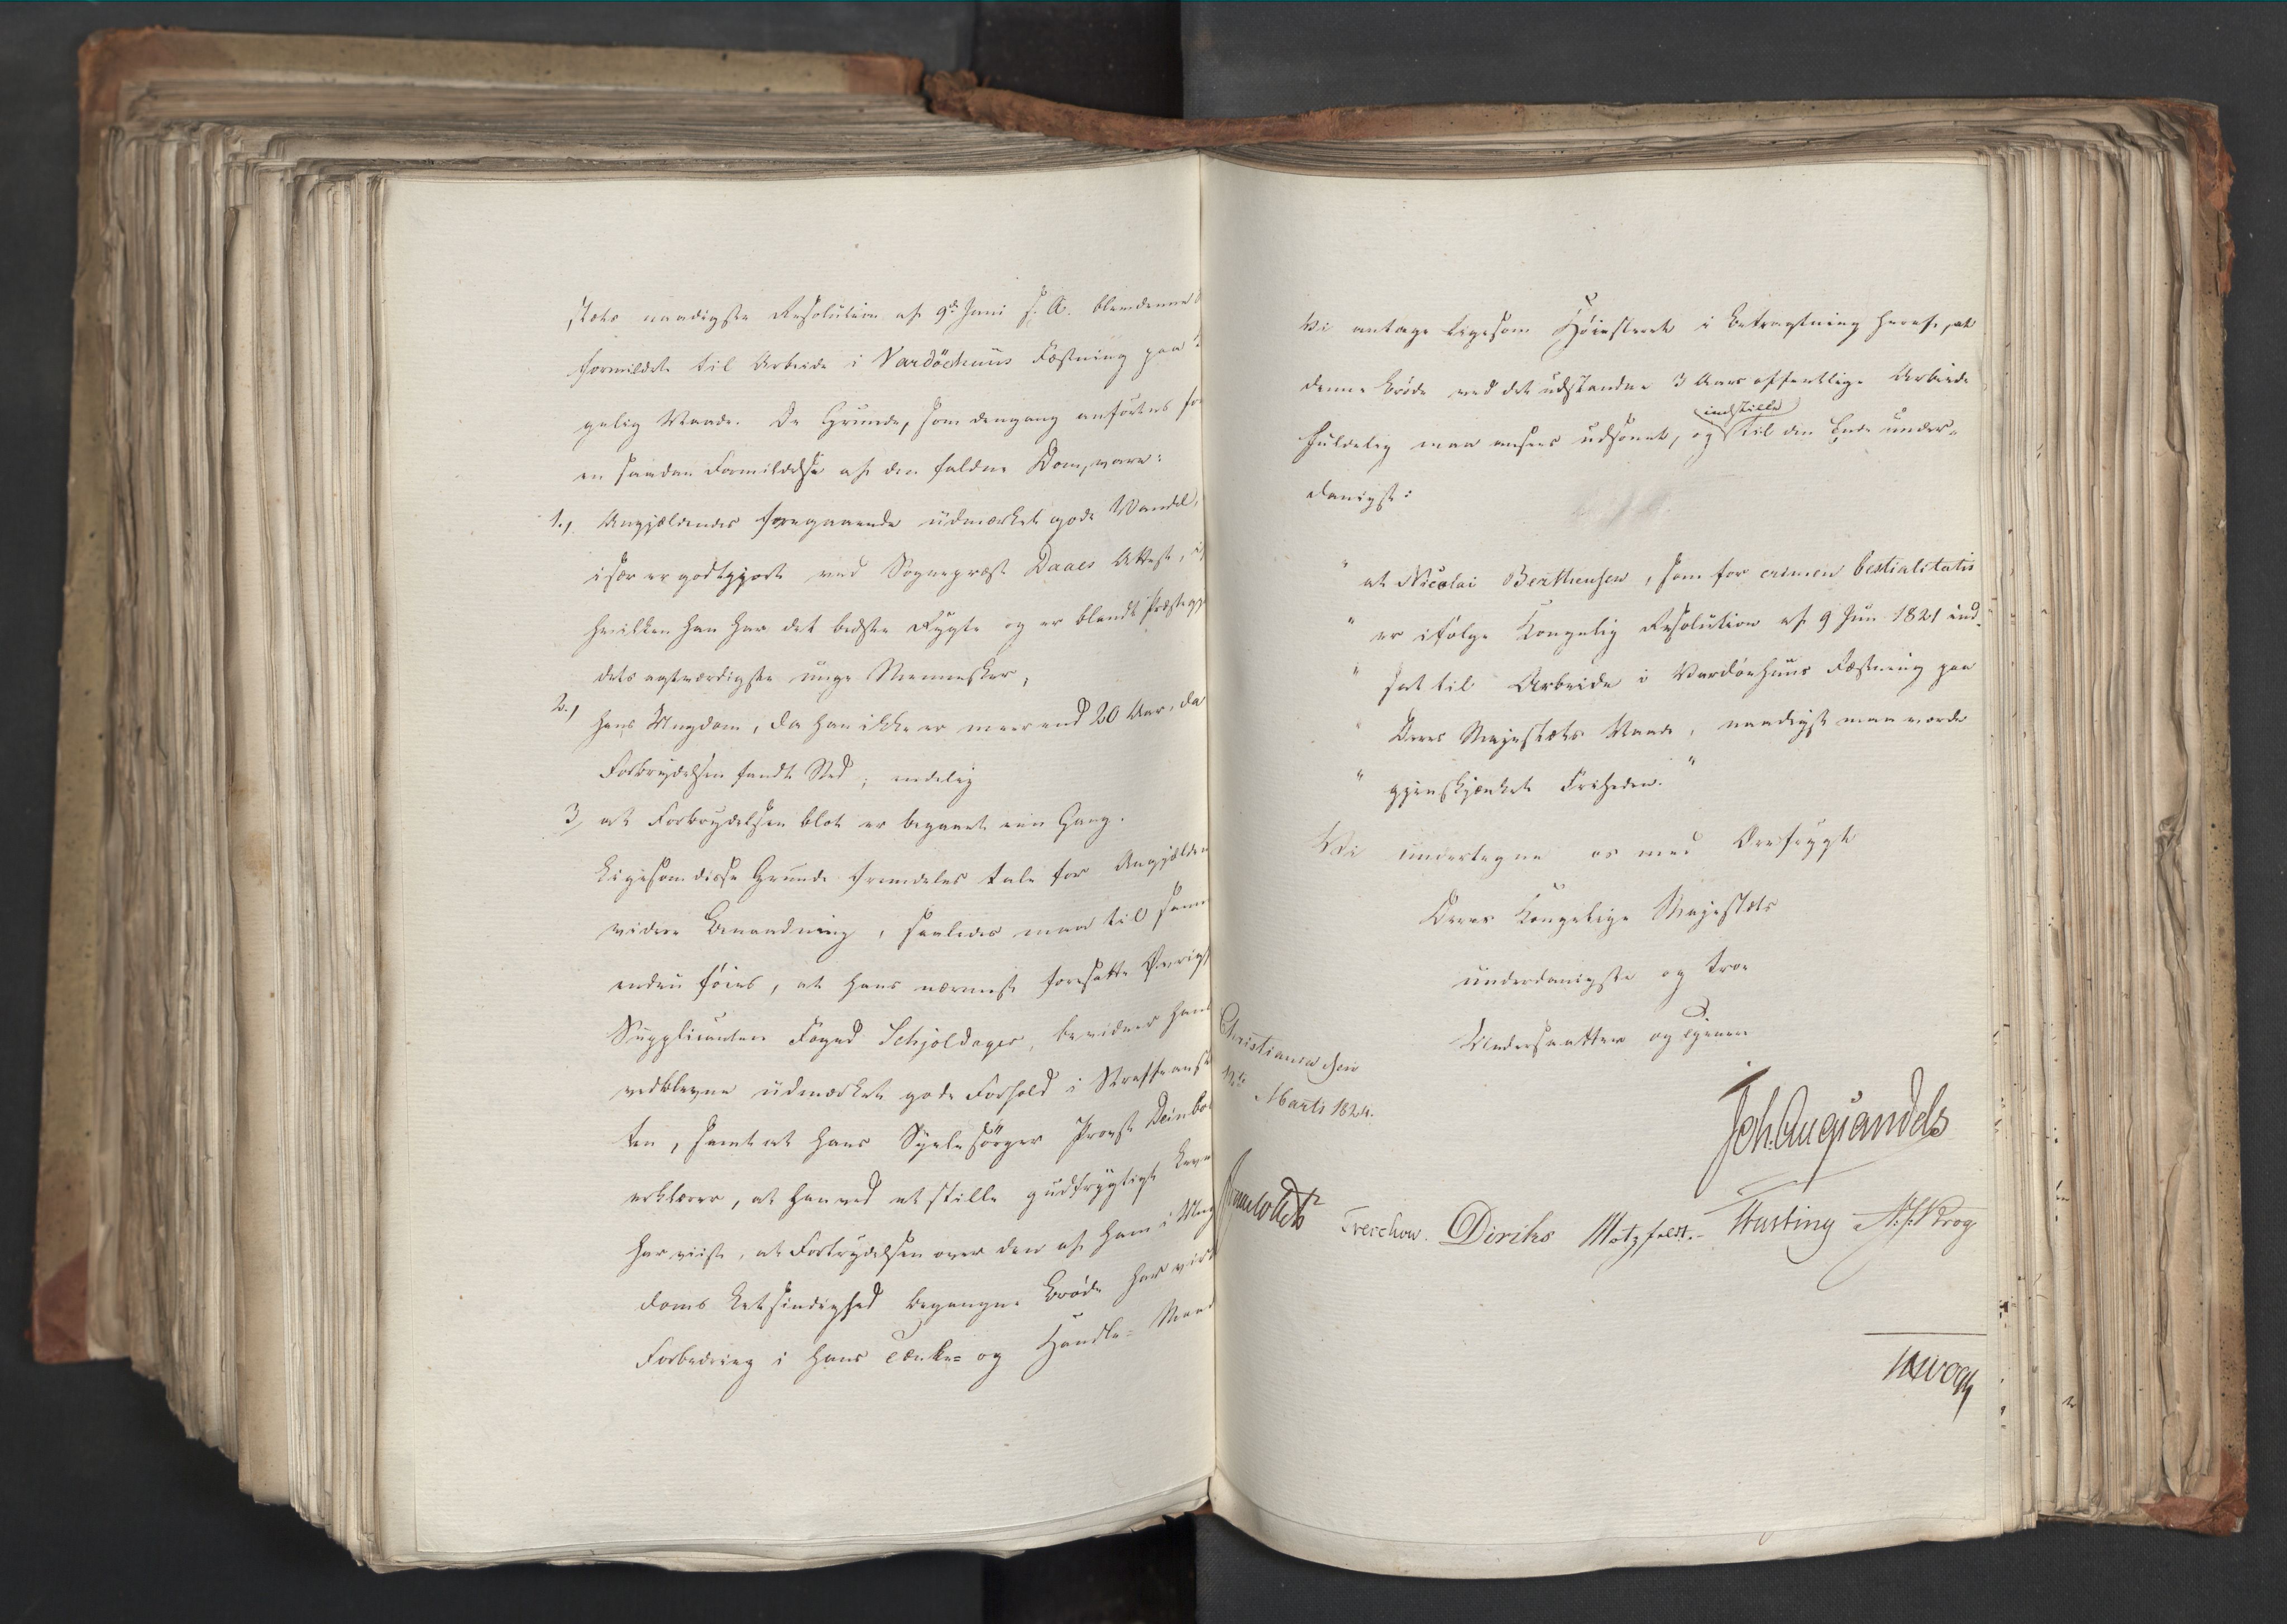 stæts naadigste Resolution af 9de Juni f. A. blev denne
formildet til Arbeide i Vardöehuus Fæstning paa
gelig Naade. De Grunde, som dengang anførtes for
en saadan Formildelse af den faldne Dom, vare:
1.) Angjældendes foregaaende udmærket gode Vandel,
især er godtgjort ved Sognepræst Daaes Attest,
hvilken han har det bedste Rygte og er blandt Præstegjel
dets agtværdigste unge Mennesker,
2.) hans Ungdom, da han ikke er meer end 20 Aar, da
Forbrydelsen fandt Sted; endelig
3, at Forbrydelsen blot er begaaet een Gang.
Ligesom disse Grunde fremdeles tale for Angjælden
videre Benaadning, saaledes maa til samme
endnu föies, at hans nærmest foresatte Øvrigh
Supplicanten Foged Schjöldager, bevidner hans
vedblevne udmærket gode Forhold i Straffeanst
ten, samt at hans Sjelesörger Provst Deinbol
erklærer, at han ved et stille gudfrygtigt Levn
har viist, at Fortrydelsen over den af ham i Ung
doms Letsindighed begangne Bröde har virk
Forbedring i hans Tænke= og Handle= Maad
Vi antage ligesom Höiesteret i Betragtning heraf, at
denne Bröde ved det udstandne 3 Aars offentlige Arbeide
fuldelig maa ansees udsonet, og indstille til den Ende under-
danigst:
" at Nicolai Bertheusen, som for crimen bestialitatis
" er ifølge Kongelig Resolution af 9 Jun 1821 ind-
" sat til Arbeide i Vardöehuus Fæstning paa
" Deres Majestæts Naade, naadigst maa vorde
" gjenskjænket Friheden."
Vi undertegne os med Ærefrygt
Deres Kongelige Majestæts
underdanigste og troe
Undersaatter og tjenere
Christiania den
12te Marti 1824.
Joh. Aug Sandels
Sommerhielm
Treschow. Diriks Motzfeldt. Fasting A. S. Krog
Vogt